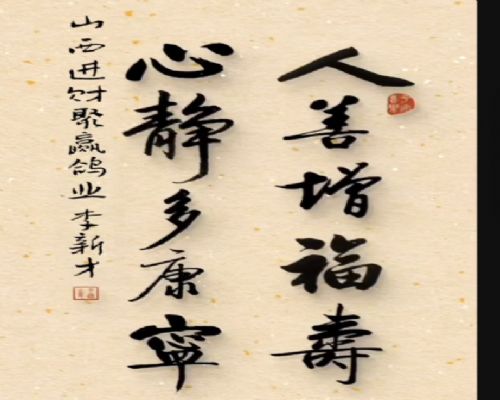 人善增福壽
心静多康寧
山西进财聚赢鸽业李新才